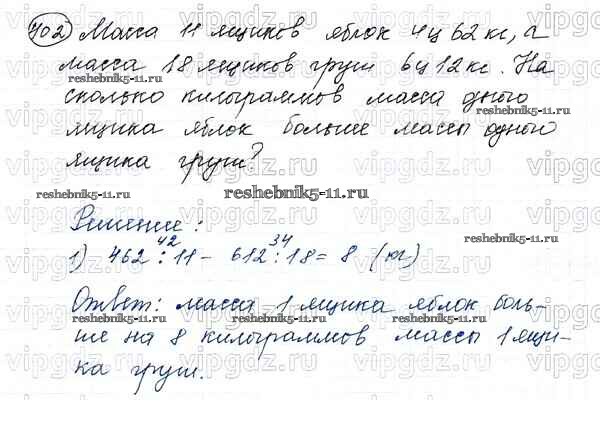 402) Масса 11 ящиков яблок 4ц 62 кг, а
масса 18 ящиков груш 6ц 12 кг. На
сколько килограммов масса одного
ящика яблок больше массы одного
ящика груш?
Решение:
42 34
1) 462 : 11 - 612 : 18 = 8 (кг)
Ответ: масса 1 ящика яблок боль-
ше на 8 килограммов массы 1 ящи-
ка груш.
vipgdz.ru
reshebnik5-11.ru